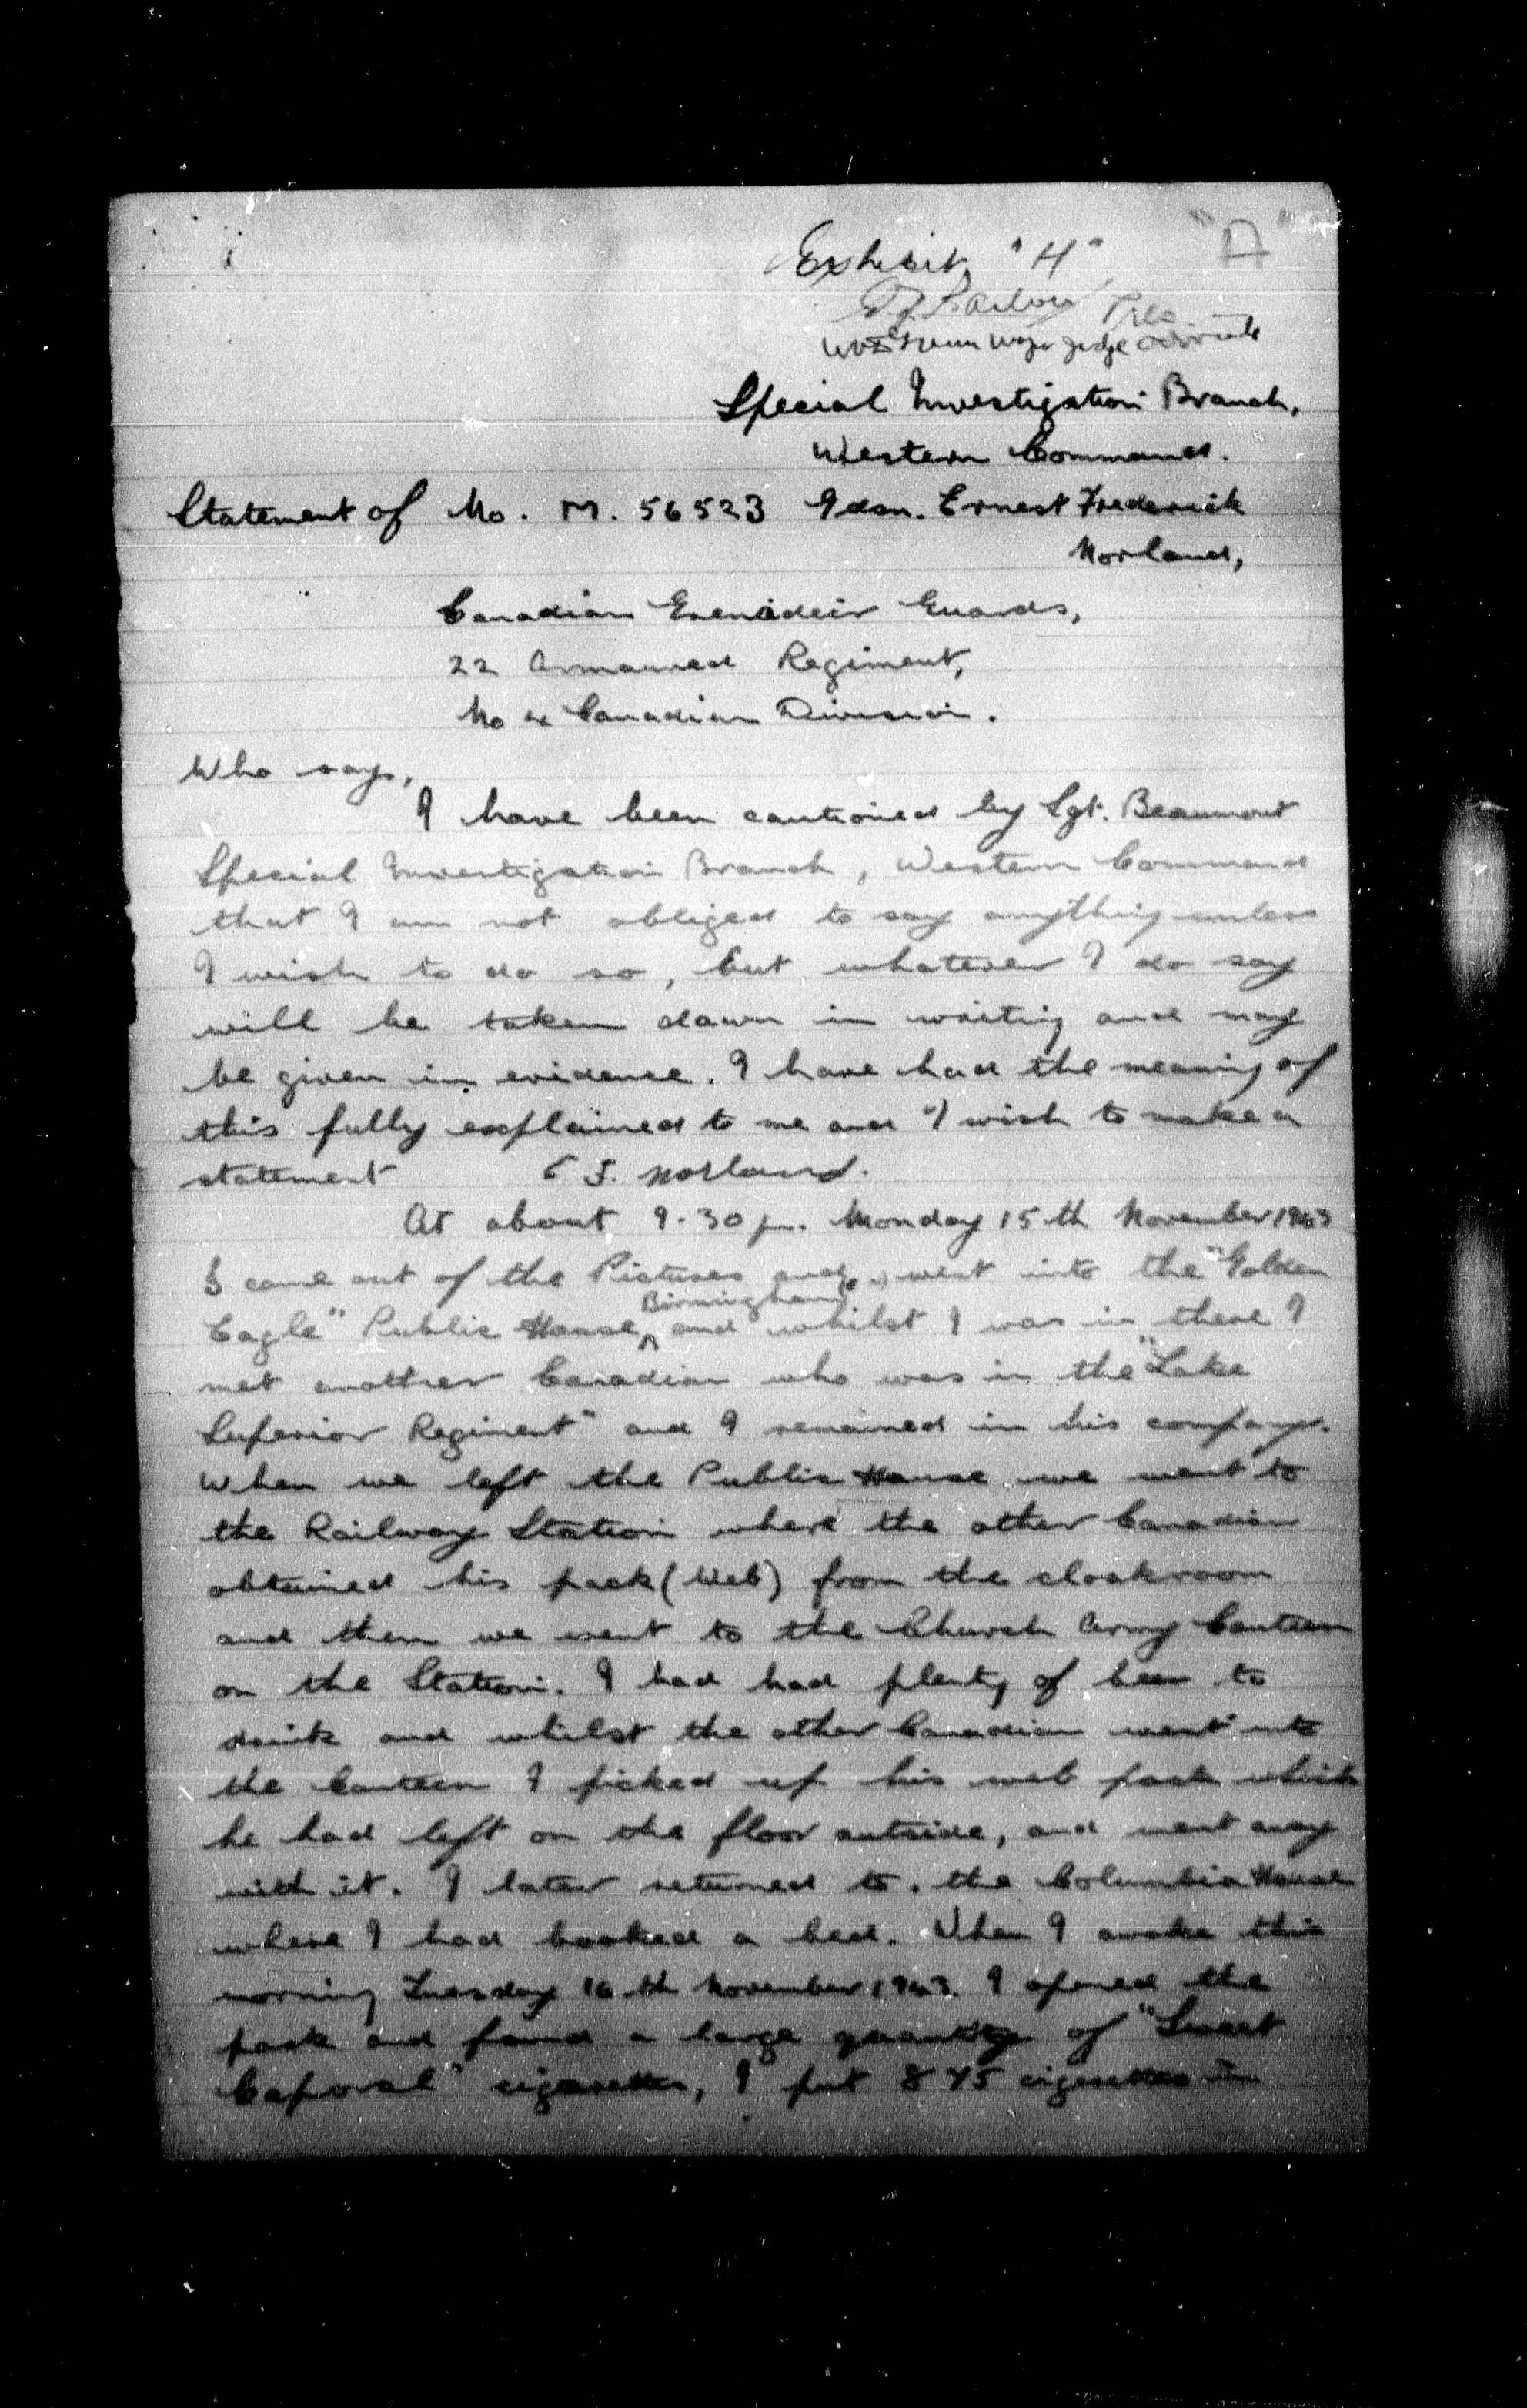 "A"
Exhibit "H"
Major Judge Advocate
Special Investigation Branch,
Western Command.
Statement of No. M. 56523 Gdsn. Ernest Frederick
Norland,
Canadian Grenadeir Guards,
22 Armoured Regiment,
No 4 Canadian Division.
Who says,
I have been cautioned by Sgt. Beaumont
Special Investigation Branch, Western Command
that I am not obliged to say anything unless
I wish to do so, but whatever I do say
will be taken down in writing and may
be given in evidence. I have had the meaning of
this fully explained to me and I wish to make a
statement E F. Norland.
At about 9.30 pm. Monday 15th November 1943
I came out of the Pictures and went into the "Golden
Birmingham
Eagle" Public House, and whilst I was in there I
met another Canadian who was in the "Lake
Superior Regiment" and I remained in his company.
When we left the Public House we went to
the Railway Station where the other Canadian
obtained his pack (Web) from the cloakroom
and then we went to the Church Army Canteen
on the Station. I had had plenty of beer to
drink and whilst the other Canadian went into
the Canteen I picked up his web pack which
he had left on the floor outside, and went away
with it. I later returned to. the Columbia House
where I had booked a bed. When I awoke this
morning Tuesday 16th November 1943. I opened the
pack and found a large quantity of "Sweet
Caporal" cigarettes, I put 845 cigarettes in